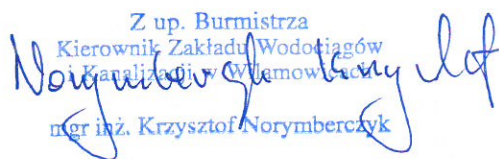 Z up. Burmistrza
Kierownik Zakładu Wodociągów
i Kanalizacji w Wilamowicach
Norymberczyk Krzysztof
mgr inż. Krzysztof Norymberczyk